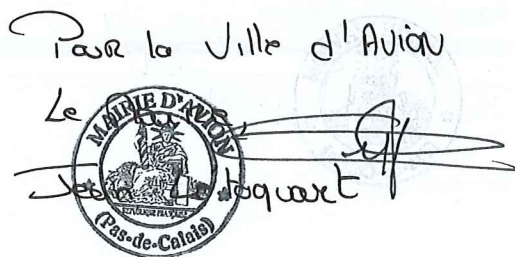 Pour la Ville d'Avion
Le
MAIRIE D'AVION
RÉPUBLIQUE FRANÇAISE
(Pas-de-Calais)